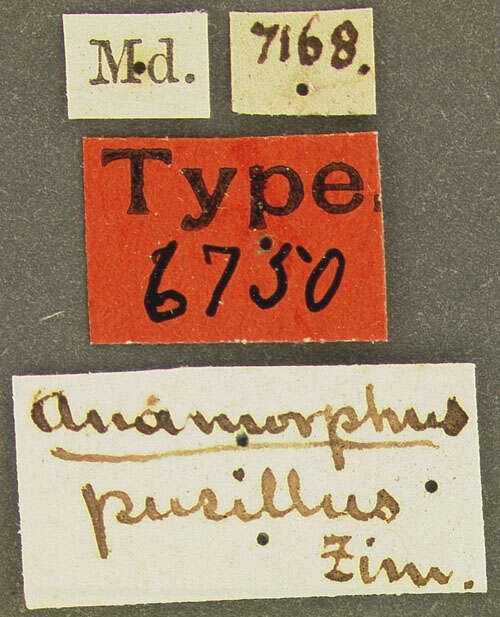 Md.
7168.
Type.
6750
Anamorphus
pusillus
Zim.